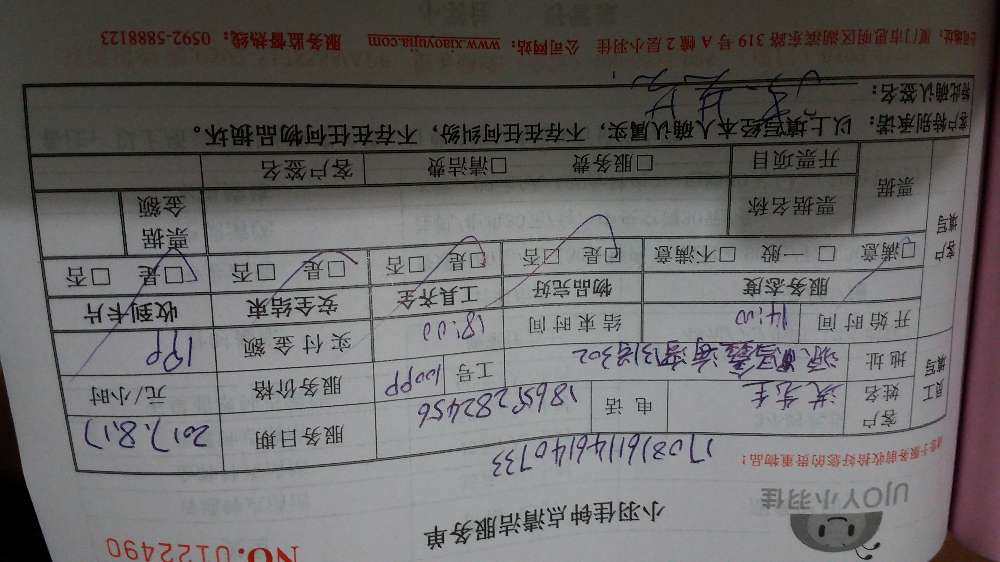 NO.0122490
UJOY小羽佳
小羽佳钟点清洁服务单
请您于服务前收拾好您的贵重物品!
1708161146140733
员工填写
客户姓名 洪先生 电话 18659282456 服务日期 2017.8.17
地址 工号 服务价格 元/小时
开始时间 14:00 结束时间 18:00 实付金额
客户填写
服务态度 物品完好 工具齐全 安全结束 收到卡片
□满意 □一般 □不满意 □是 □否 □是 □否 □是 □否 □是 □否
票据 票据名称 票据金额
开票项目 □服务费 □清洁费 客户签名
客户特别承诺: 以上填写经本人确认属实,不存在任何纠纷,不存在任何物品损坏。
特此确认签名:
公司地址:厦门市思明区湖滨东路319号A幢2层小羽佳 公司网站:www.xiaoyujia.com 服务监督热线:0592-5888123